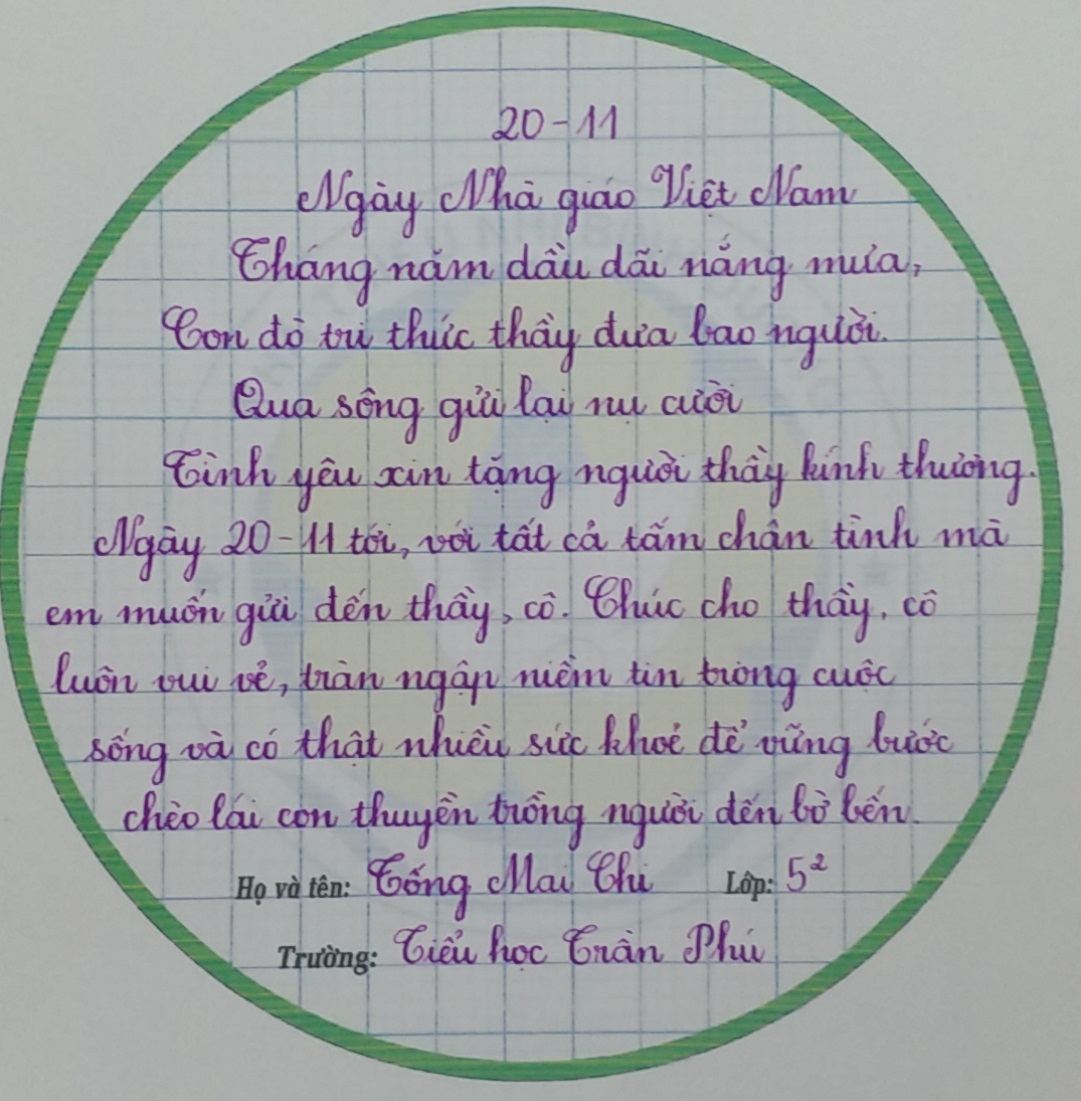 20-11
Ngày Nhà giáo Việt Nam
Tháng năm dầu dãi nắng mưa,
Con đò tri thức thầy đưa bao người.
Qua sông gửi lại nụ cười
Tình yêu xin tặng người thầy kính thương.
Ngày 20-11 tới, với tất cả tấm chân tình mà
em muốn gửi đến thầy, cô. Chúc cho thầy, cô
luôn vui vẻ, tràn ngập niềm tin trong cuộc
sống và có thật nhiều sức khoẻ để vững bước
chèo lái con thuyền trồng người đến bờ bến.
Họ và tên: Tống Mai Chi Lớp: 5²
Trường: Tiểu học Trần Phú